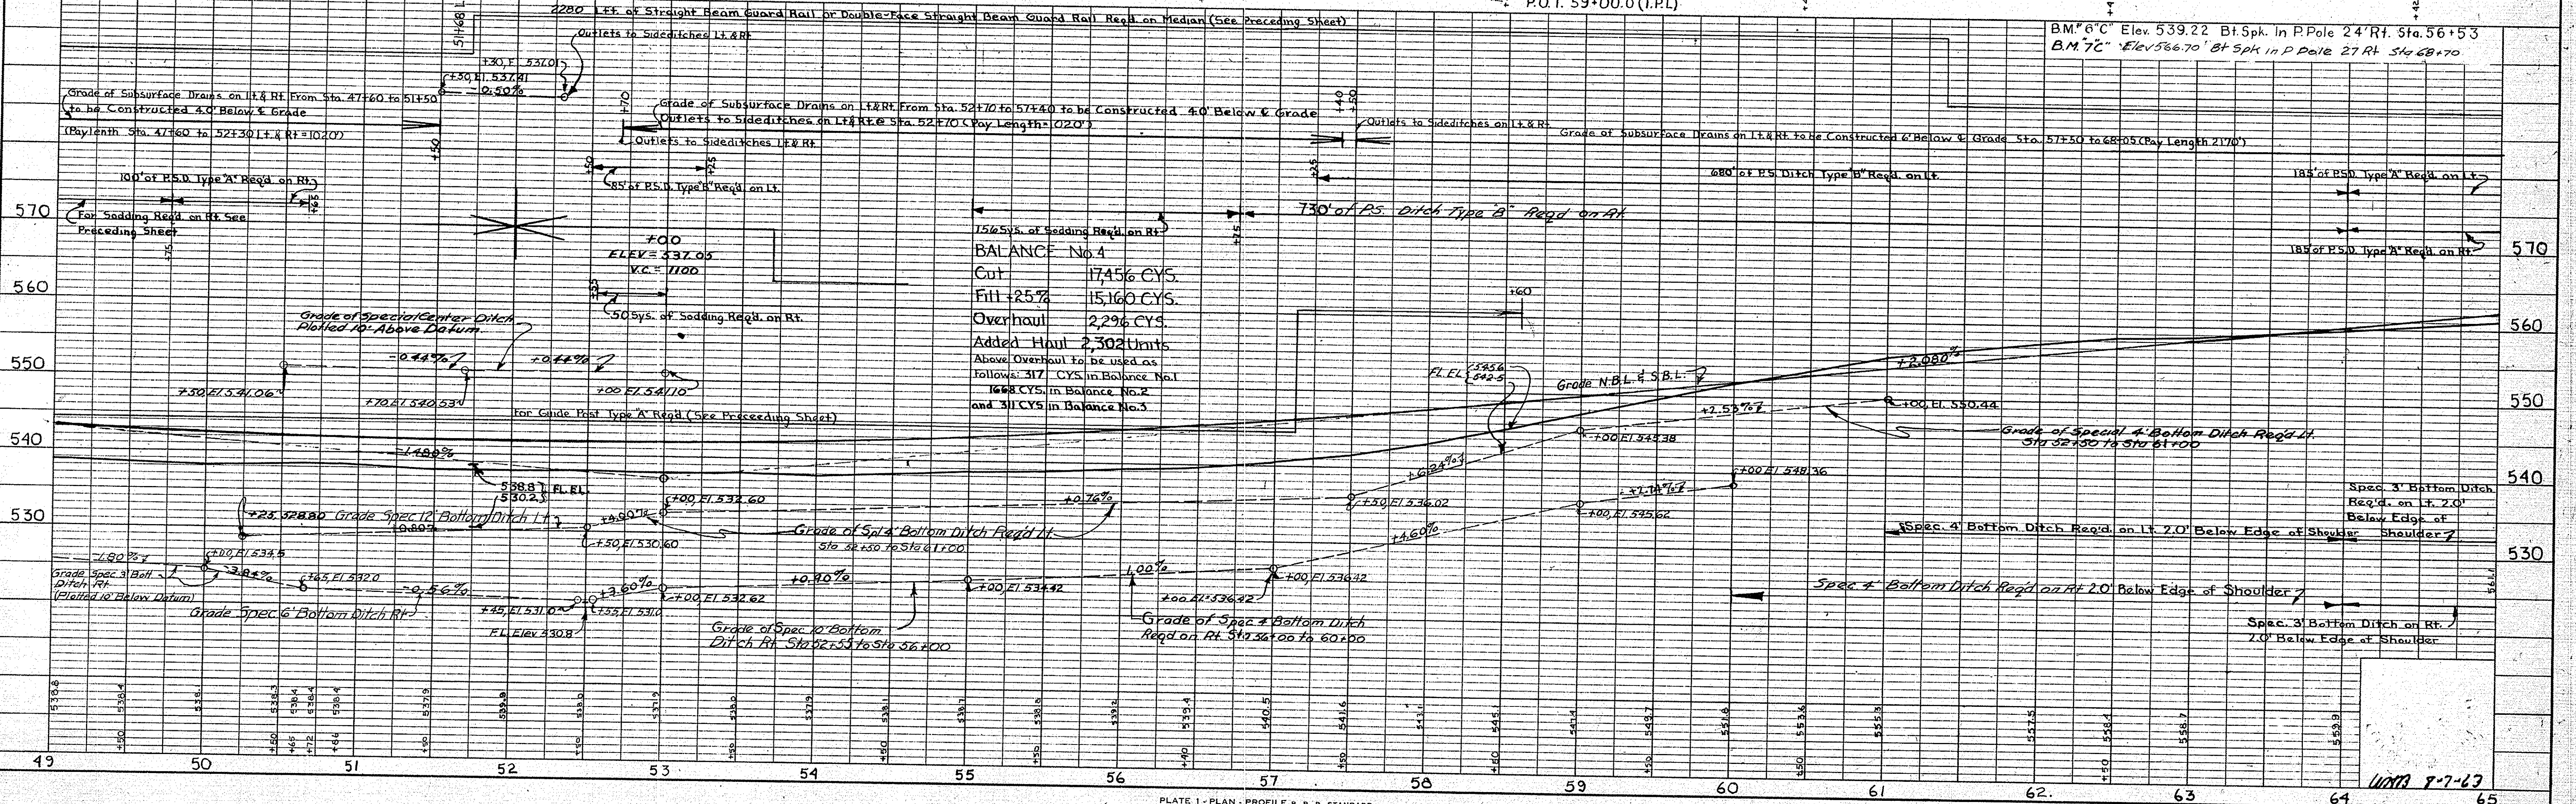 P.O.T. 59+00.0 (I.P.L)
2280 Lft. of Straight Beam Guard Rail or Double-Face Straight Beam Guard Rail Reqd. on Median (See Preceding Sheet)
B.M."6"C" Elev. 539.22 Bt. Spk. In P. Pole 24' Rt. Sta. 56+53
B.M."7C" Elev 566.70' Bt Spk in P Pole 27 Rt Sta 68+70
51+68 L
Outlets to Sideditches Lt. & Rt
+30, El. 537.01
+50, El. 537.41
-0.50%
Grade of Subsurface Drains on Lt. & Rt. From Sta. 47+60 to 51+50
to be Constructed 4.0' Below ℄ Grade
(Pay lenth Sta. 47+60 to 52+30 Lt. & Rt = 1020')
+50
+70
Grade of Subsurface Drains on Lt & Rt. From Sta. 52+70 to 57+40 to be Constructed 4.0' Below ℄ Grade
Outlets to Sideditches on Lt & Rt. @ Sta. 52+70 (Pay Length= 1020')
Outlets to Sideditches Lt & Rt
+40
+50
Outlets to Sideditches on Lt. & Rt.
Grade of Subsurface Drains on Lt. & Rt. to be Constructed 6' Below ℄ Grade Sta. 57+50 to 68+05 (Pay Length 2170')
100' of P.S.D. Type "A" Req'd. on Rt.
+65
+50
+25
85' of P.S.D. Type "B" Req'd. on Lt.
+25
680' of P.S. Ditch Type "B" Req'd. on Lt.
185' of P.S.D. Type "A" Req'd. on Lt
570
For Sodding Req'd. on Rt. See
Preceding Sheet
+75
730' of P.S. Ditch Type "B" Reqd on Rt.
156 Sys. of Sodding Req'd. on Rt
+75
185' of P.S.D. Type "A" Req'd. on Rt.
570
+00
ELEV = 537.05
V.C. = 1100
+55
50 Sys. of Sodding Req'd. on Rt.
BALANCE No. 4
Cut 17,456 CYS.
Fill +25% 15,160 CYS.
Overhaul 2,296 CYS.
Added Haul 2,302 Units
Above Overhaul to be used as
Follows: 317 CYS. in Balance No.1
1668 CYS. in Balance No.2
and 311 CYS in Balance No.3
+60
560
560
Grade of Special Center Ditch
Plotted 10' Above Datum
-0.44%
+0.44%
550
+50, El. 541.06
+70, El. 540.53
+00 El. 541.10
For Guide Post Type "A" Reqd. (See Preceeding Sheet)
FL. EL. 545.6
542.5
Grade N.B.L. & S.B.L.
+2.080%
+2.53%
+00, El. 550.44
550
Grade of Special 4' Bottom Ditch Req'd Lt.
Sta 52+50 to Sta 61+00
+00 El. 545.38
540
-1.480%
538.8
530.2 FL. EL.
+00, El. 532.60
+0.76%
+6.24%
+50, El. 536.02
+00 El. 548.36
+2.74%
+00, El. 545.62
540
Spec. 3' Bottom Ditch
Req'd. on Lt. 2.0'
Below Edge of
Shoulder
530
+25, 528.80 Grade Spec 12' Bottom Ditch Lt.
+4.00%
+50, El. 530.60
Grade of Spl 4' Bottom Ditch Req'd Lt.
Sta 52+50 to Sta 61+00
+4.60%
Spec. 4' Bottom Ditch Req'd. on Lt. 2.0' Below Edge of Shoulder
530
-1.80%
+00, El. 534.5
-3.84%
Grade Spec 3' Bott
Ditch Rt
(Plotted 10' Below Datum)
+65, El. 532.0
-0.56%
Grade Spec. 6' Bottom Ditch Rt
+45, El. 531.0
+55 El. 531.0
+3.60%
+00, El. 532.62
FL. Elev 530.8
+0.90%
+00, El. 534.42
1.00%
+00, El. 536.42
+00, El. 536.42
Grade of Spec 10' Bottom
Ditch Rt. Sta 52+55 to Sta 56+00
Grade of Spec 4' Bottom Ditch
Reqd on Rt Sta 56+00 to 60+00
Spec 4' Bottom Ditch Req'd on Rt 2.0' Below Edge of Shoulder
Spec. 3' Bottom Ditch on Rt.
2.0' Below Edge of Shoulder
561.1
538.8 538.4 538. 538.3 538.4 538.4 538.4 537.9 539.9 538.0 537.9 538.0 537.9 538.1 538.1 538.8 539.2 539.4 540.5 541.6 543.1 545.1 547.4 549.7 551.8 553.6 555.3 557.5 558.4 558.7 559.9
+50 +50 +65 +72 +86 +50 +50 +50 +50 +50 +40 +50 +50 +50 +50 +50
49 50 51 52 53 54 55 56 57 58 59 60 61 62. 63 64 65
8-7-63
PLATE 1 - PLAN - PROFILE